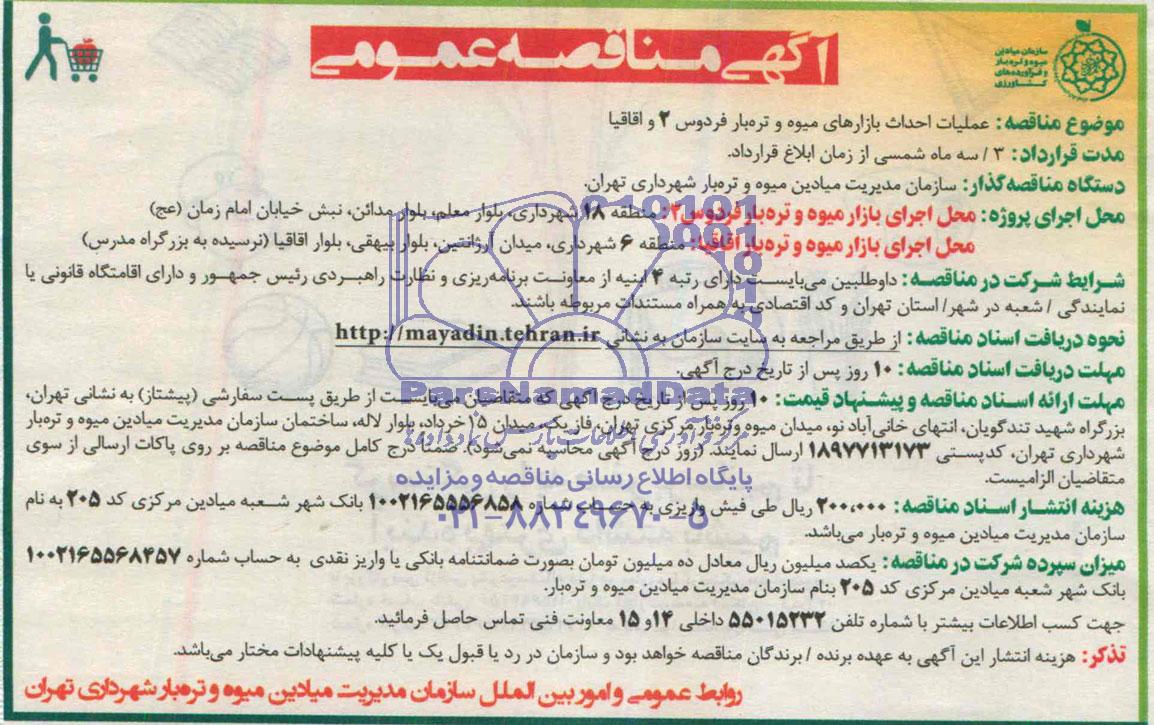 آگهی مناقصه عمومی
سازمان میادین
میوه و تره بار
و فرآورده‌های
کشاورزی
موضوع مناقصه: عملیات احداث بازارهای میوه و تره‌بار فردوس ۲ و اقاقیا
مدت قرارداد: ۳ / سه ماه شمسی از زمان ابلاغ قرارداد.
دستگاه مناقصه‌گذار: سازمان مدیریت میادین میوه و تره‌بار شهرداری تهران.
محل اجرای پروژه: محل اجرای بازار میوه و تره‌بار فردوس۲: منطقه ۱۸ شهرداری، بلوار معلم، بلوار مدائن، نبش خیابان امام زمان (عج)
محل اجرای بازار میوه و تره‌بار اقاقیا: منطقه ۶ شهرداری، میدان آرژانتین، بلوار بیهقی، بلوار اقاقیا (نرسیده به بزرگراه مدرس)
شرایط شرکت در مناقصه: داوطلبین می‌بایست دارای رتبه ۴ ابنیه از معاونت برنامه‌ریزی و نظارت راهبردی رئیس جمهور و دارای اقامتگاه قانونی یا
نمایندگی / شعبه در شهر/ استان تهران و کد اقتصادی به همراه مستندات مربوطه باشند.
نحوه دریافت اسناد مناقصه: از طریق مراجعه به سایت سازمان به نشانی http://mayadin.tehran.ir
مهلت دریافت اسناد مناقصه: ۱۰ روز پس از تاریخ درج آگهی.
مهلت ارائه اسناد مناقصه و پیشنهاد قیمت: ۱۰ روز پس از تاریخ درج آگهی که متقاضیان می‌بایست از طریق پست سفارشی (پیشتاز) به نشانی تهران،
بزرگراه شهید تندگویان، انتهای خانی‌آباد نو، میدان میوه وتره‌بار مرکزی تهران، فاز یک، میدان ۱۵ خرداد، بلوار لاله، ساختمان سازمان مدیریت میادین میوه و تره‌بار
شهرداری تهران، کدپستی ۱۸۹۷۷۱۳۱۷۳ ارسال نمایند. (روز درج آگهی محاسبه نمی‌شود). ضمناً درج کامل موضوع مناقصه بر روی پاکات ارسالی از سوی
متقاضیان الزامیست.
هزینه انتشار اسناد مناقصه: ۲۰۰,۰۰۰ ریال طی فیش واریزی به حساب شماره ۱۰۰۲۱۶۵۵۵۶۸۵۸ بانک شهر شعبه میادین مرکزی کد ۲۰۵ به نام
سازمان مدیریت میادین میوه و تره‌بار می‌باشد.
میزان سپرده شرکت در مناقصه: یکصد میلیون ریال معادل ده میلیون تومان بصورت ضمانتنامه بانکی یا واریز نقدی به حساب شماره ۱۰۰۲۱۶۵۵۶۸۴۵۷
بانک شهر شعبه میادین مرکزی کد ۲۰۵ بنام سازمان مدیریت میادین میوه و تره‌بار.
جهت کسب اطلاعات بیشتر با شماره تلفن ۵۵۰۱۵۲۳۲ داخلی ۱۴و ۱۵ معاونت فنی تماس حاصل فرمائید.
تذکر: هزینه انتشار این آگهی به عهده برنده / برندگان مناقصه خواهد بود و سازمان در رد یا قبول یک یا کلیه پیشنهادات مختار می‌باشد.
روابط عمومی و امور بین الملل سازمان مدیریت میادین میوه و تره‌بار شهرداری تهران
ParsNamadData
پایگاه اطلاع رسانی مناقصه و مزایده
۰۲۱-۸۸۳۴۹۶۷۰-۵